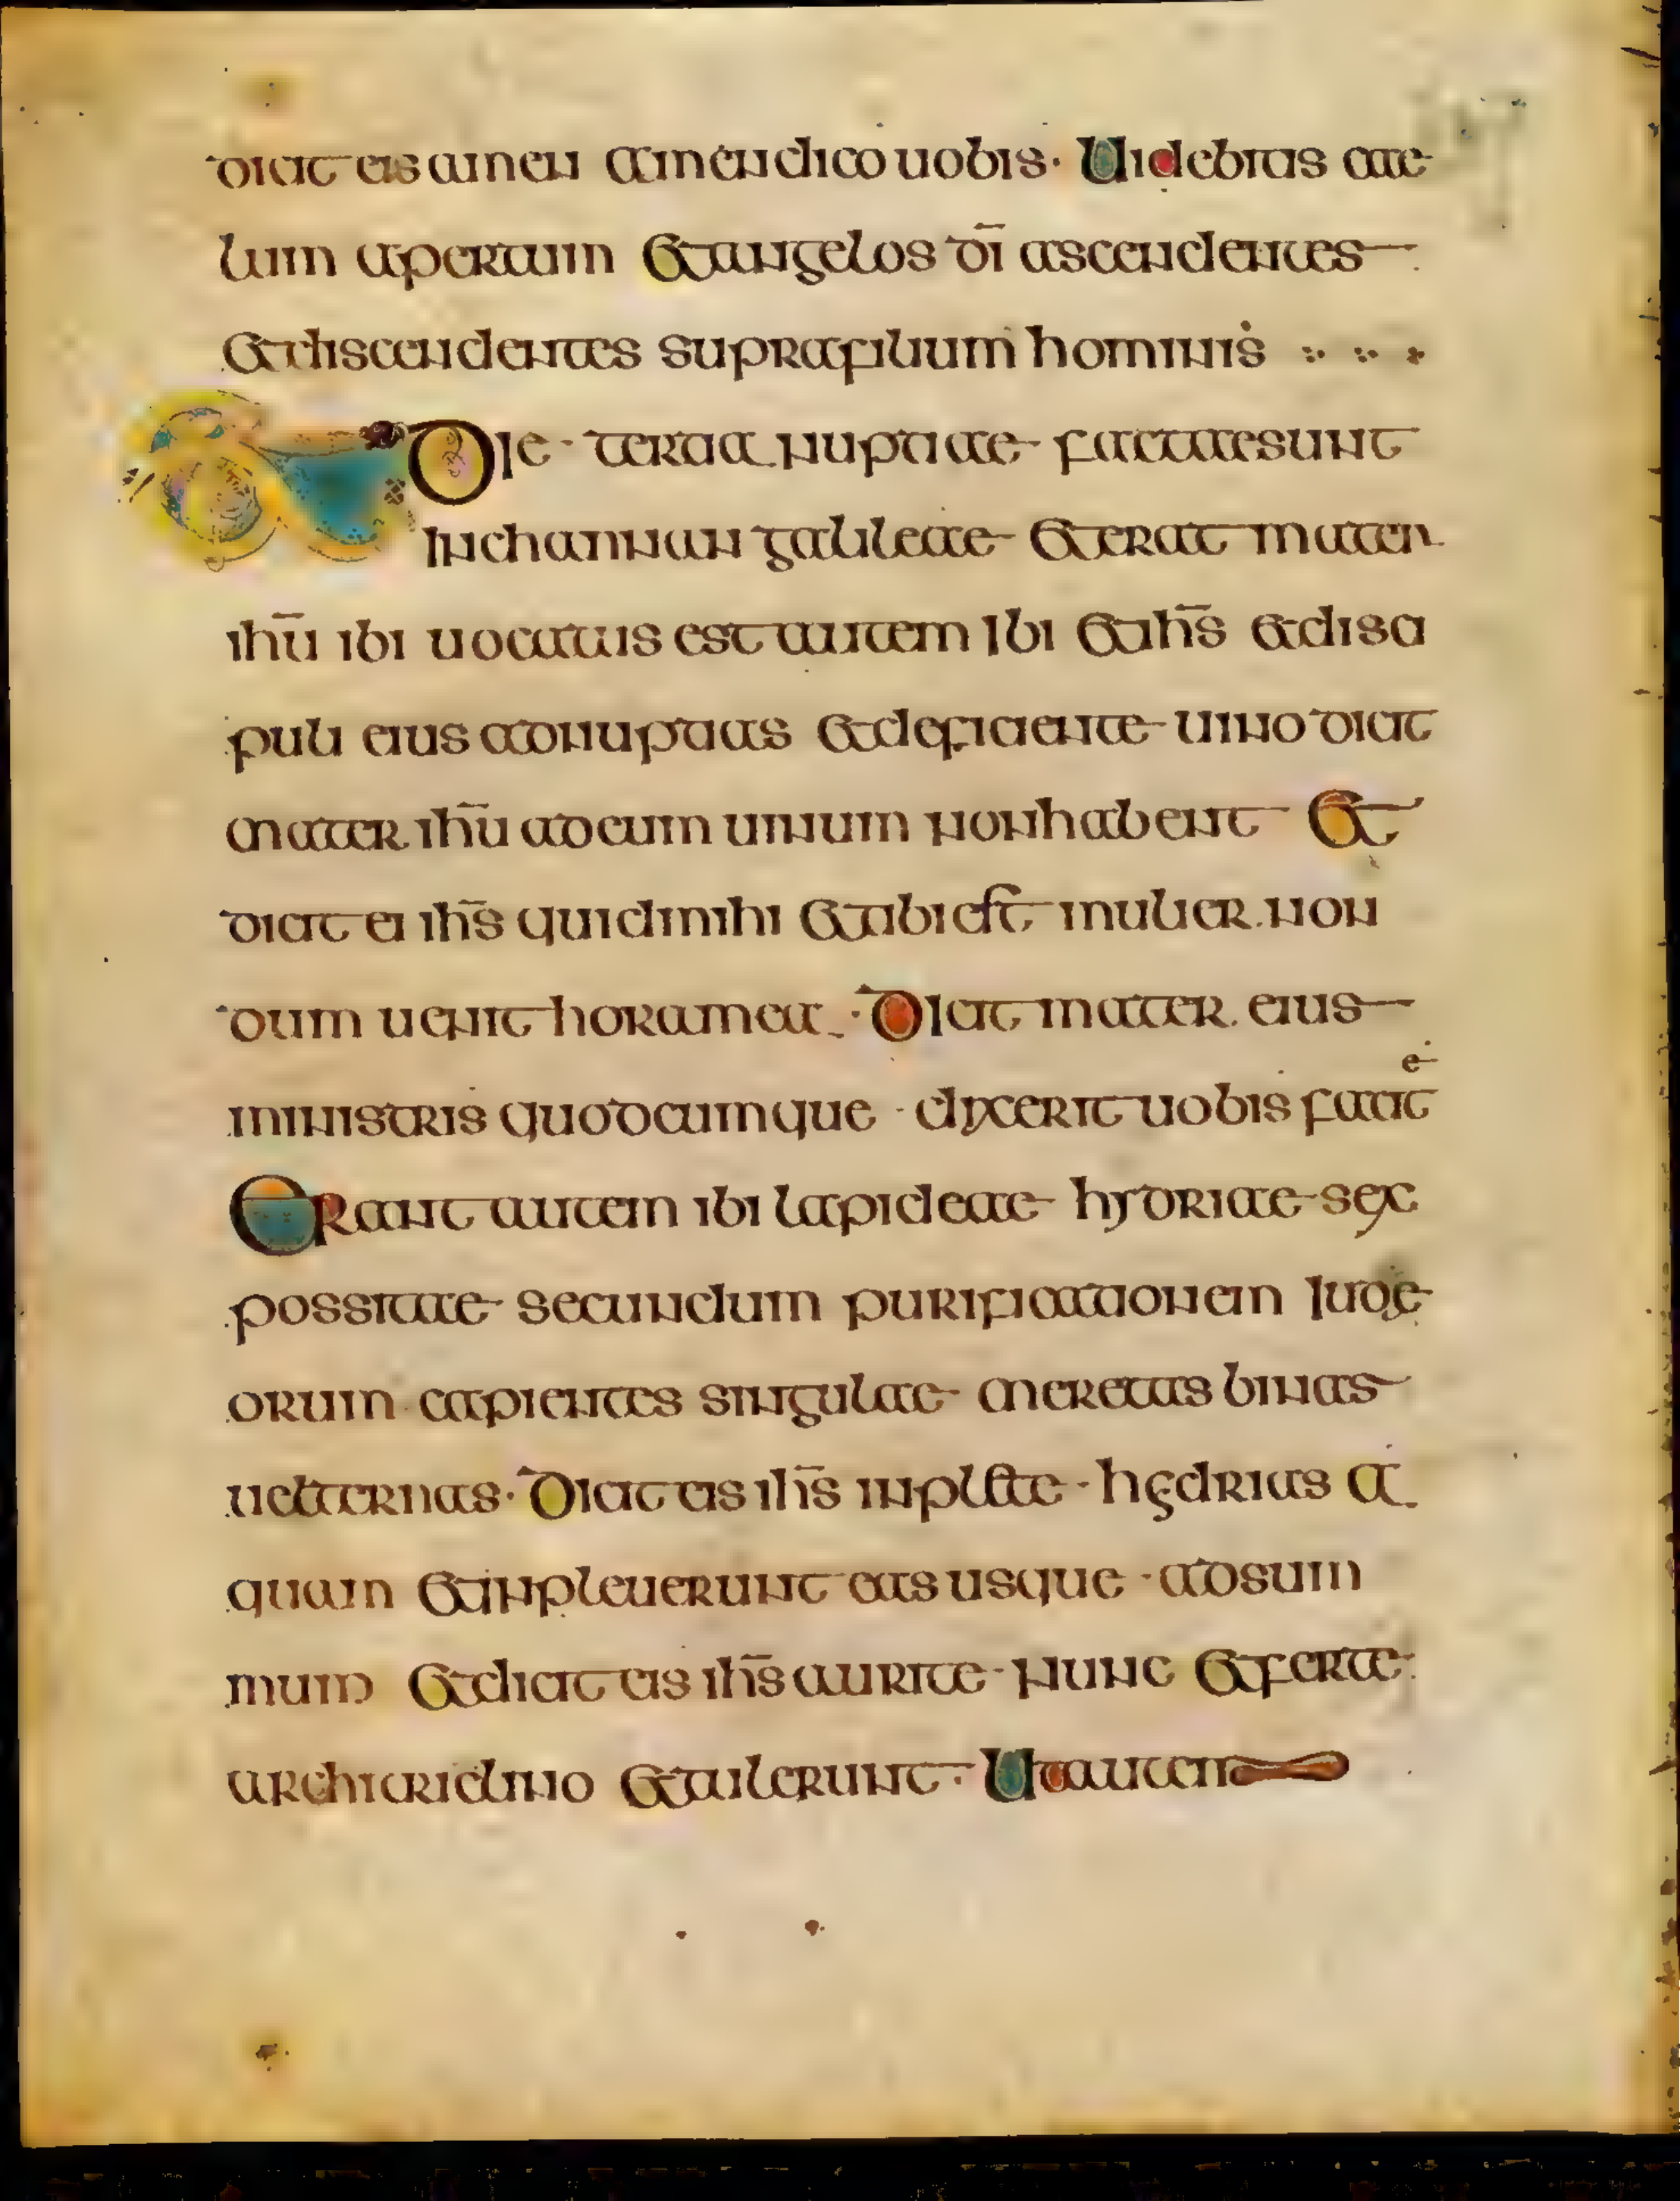 dicit eis amen amen dico uobis · Uidebitis cae
lum apertum Et angelos dī ascendentes
Et discendentes supra filium hominis
Et Die · tertia nuptiae factae sunt
In channan galileae Et erat mater
ihū ibi uocatus est autem Ibi Et ihs̄ et disci
puli eius ad nuptias et deficiente uino dicit
mater ihū ad eum uinum non habent Et
dicit ei ihs̄ quid mihi Et tibi est mulier · non
dum uenit hora mea · Dicit mater eius
ministris quodcumque · dixerit uobis facite
Erant autem ibi lapideae hydriae sex
possitae secundum purificationem Iudę
orum capientes singulae metretas binas
uel ternas · Dicit eis ihs̄ inplete · hędrias a
quam Et inpleuerunt eas usque · ad sum
mum Et dicit eis ihs̄ aurite · nunc Et ferte
architriclino Et tulerunt · Ut autem